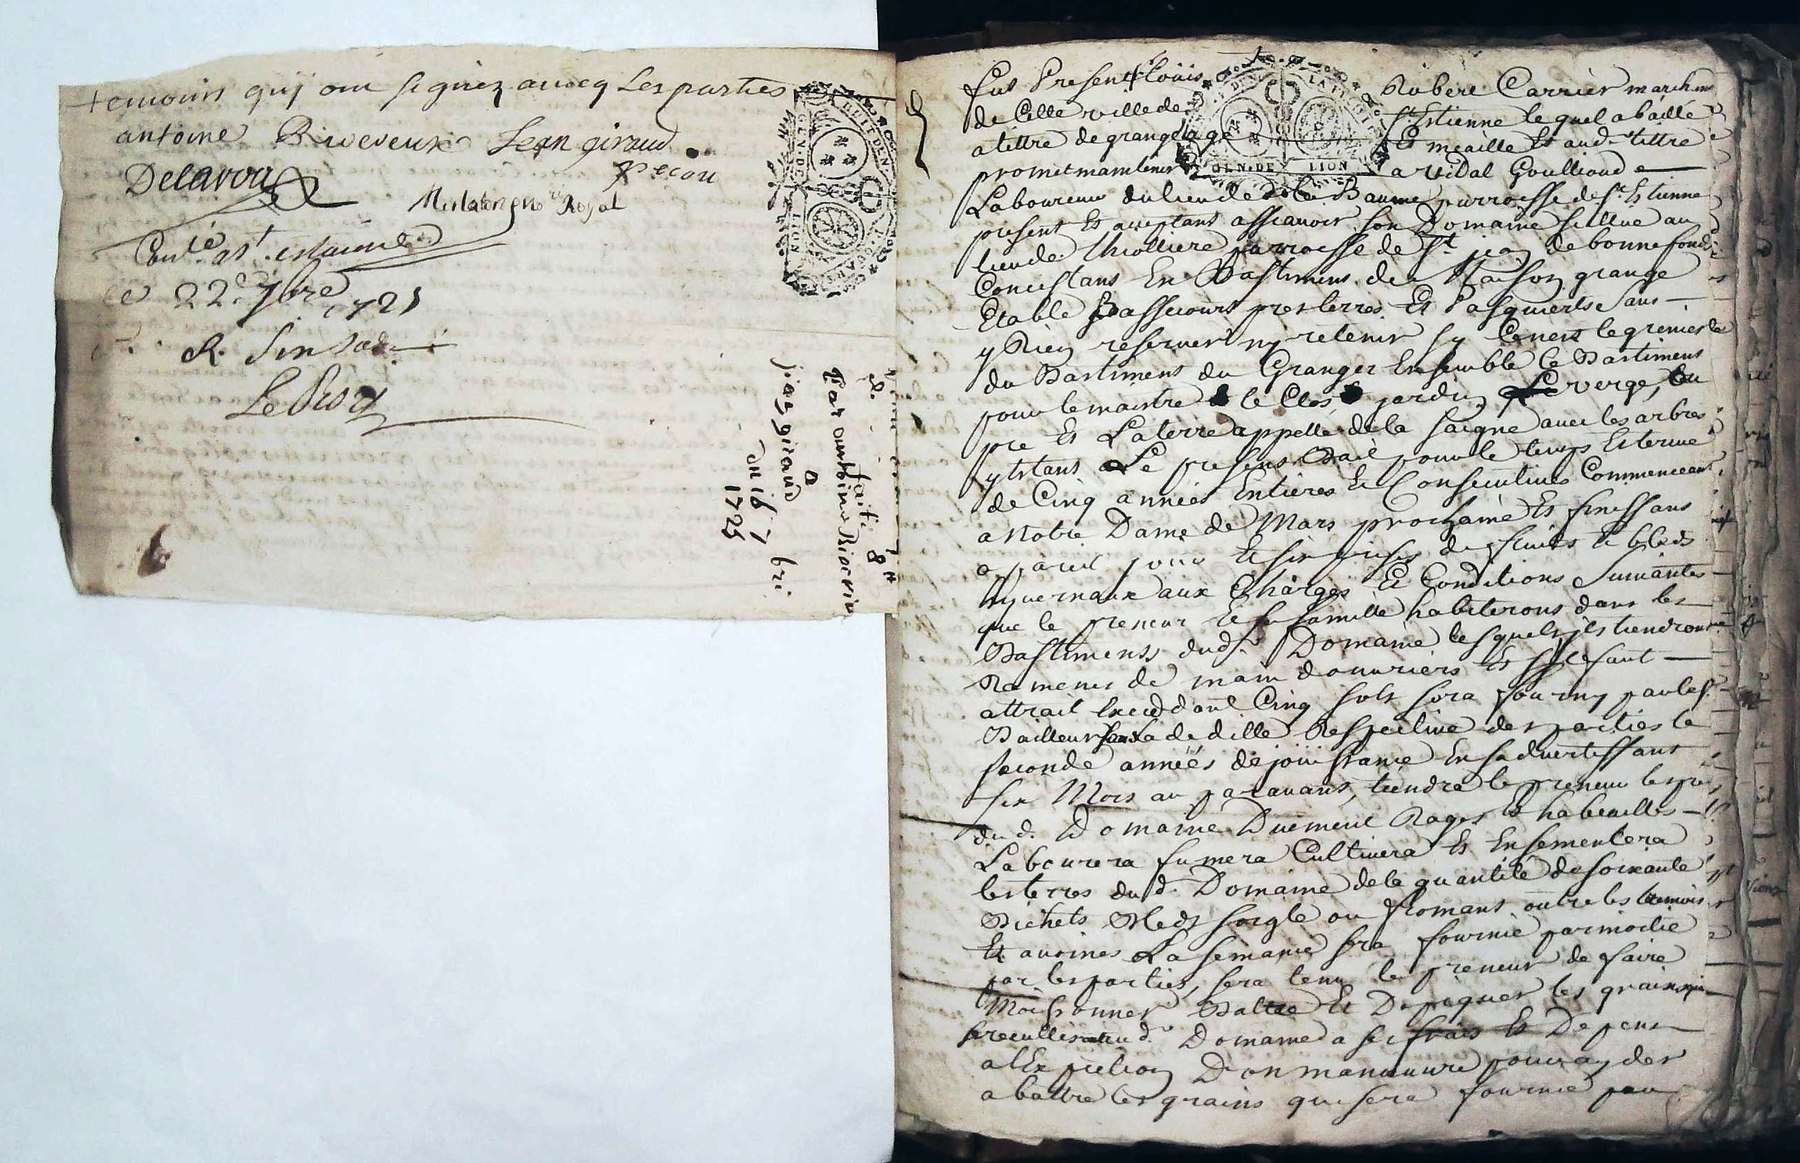 temoins quj ont signez auecq Les parties
antoine Jean giraud
Delaroa
Royal
Con.lé a St estienne
le 22e 7bre 1725
R.
faitte
Par anthoine
a
jian giraud
du 16 7 bri
1725
GENE DE LION
fut Present Sr Louis Robert Carrier marchant
de Cette ville de St Estienne lequel a baillé
a tittre de grangeage Et meaille Et aud. tittre
promet maintenir a vidal Goulliand
Laboureur du lieu de la Baume parroisse de St Estienne
present Et acceptant assçauoir son Domaine sittue au
lieu de Thiolliere parroisse de St jean de bonnefond
Concistant En Bastiment de Maison grange
Etable Bassecourt pres terres Et Pasquiert Sans
y Rien reseruer ny retenir sy Ce nest le grenier
du Bastiment du Granger Ensemble le Bastiment
pour le maistre le Clos jardin Le verge,
pre Et La terre appellé de la saigne auec les arbres
y Estant Le present Bail pour le temps Et terme
de Cinq années Entieres Et Consecutiues Commenceant
a Notre Dame de Mars prochaine Et finissant
a pareil jour Et six prises de fruits Et bleds
hyuernaux aux Charges Et Conditions Suiuantes
que le preneur Et sa famille habiterons dans les
Bastiments dud. Domaine lesquels jls tiendront
Ramener de main douuriers Et sil defaut
attrait Exceddant Cinq sols sera fourny par led.
Bailleur de dille Respectiue des parties la
seconde années de jouissance En saduertissant
six Mois au parauant, tiendra le preneur les prés
dud. Domaine Duement Rages Et habeuilles
Labourera fumera Cultiuera Et Ensemencera
les terres dud. Domaine de la quantité de soixante
Bichets Bled soigle ou fromant outre les tremois
Et auoines La semance sera fournie par moitié
par les parties, sera tenu le preneur de faire
Moissonner Battre Et Depiquer les grains qui
se recullieront aud. Domaine a ses frais Et Depens
a lExeption Don manœuure pour ayder
a battre les grains qui sera fournie par